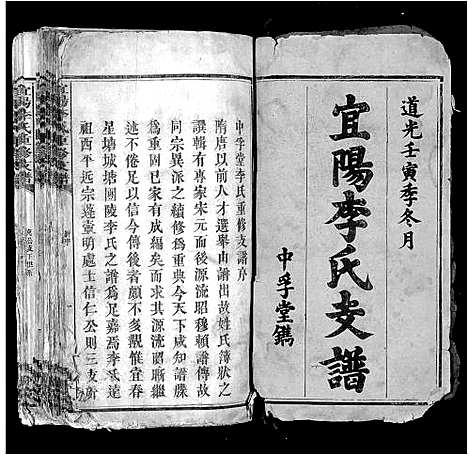 道光壬寅季冬月
宜陽李氏支譜
中孚堂鐫
中孚堂李氏重修支譜序
隋唐以前人才選舉由譜出故姓氏簿狀之
譔輯有專家宋元而後源流昭穆賴譜傳故
同宗異派之續修為重典今天下咸知譜牒
為重固已家成編矣而求其源流昭晰繼
承不紊足以信今傳後者顧不多覯惟宜春
星塘城塘關陵李氏之譜為足嘉焉李氏遠
祖西平近宗蓬壺明處士信仁公則三支所
宜陽李氏重修支譜